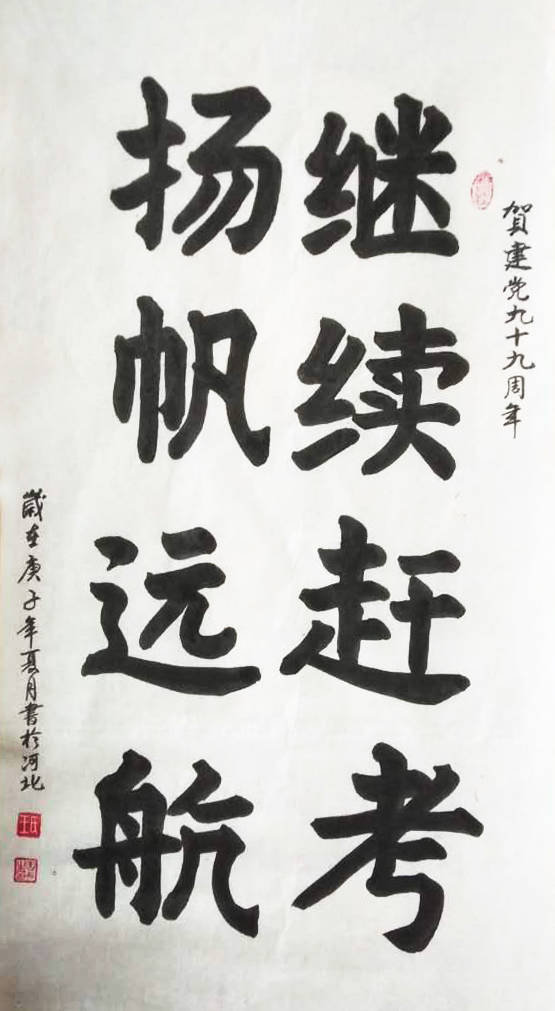 贺建党九十九周年
继续赶考
扬帆远航
歲在庚子年夏月書於河北
王氏